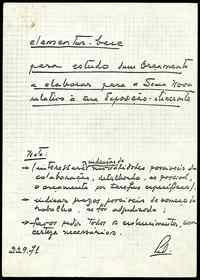 elementos-base
para estudo dum orçamento
a elaborar para a Seara Nova
relativo à sua Exposição-itinerante
Nota:
redução de
→ (interessa-nos modalidades possíveis de
colaboração, detalhando, se possível,
o orçamento por tarefas específicas).
→ indicar prazos possíveis de começo de
trabalho, se for adjudicado;
→ favor pedir todos os esclarecimentos, com
certeza necessários.
22.9.71